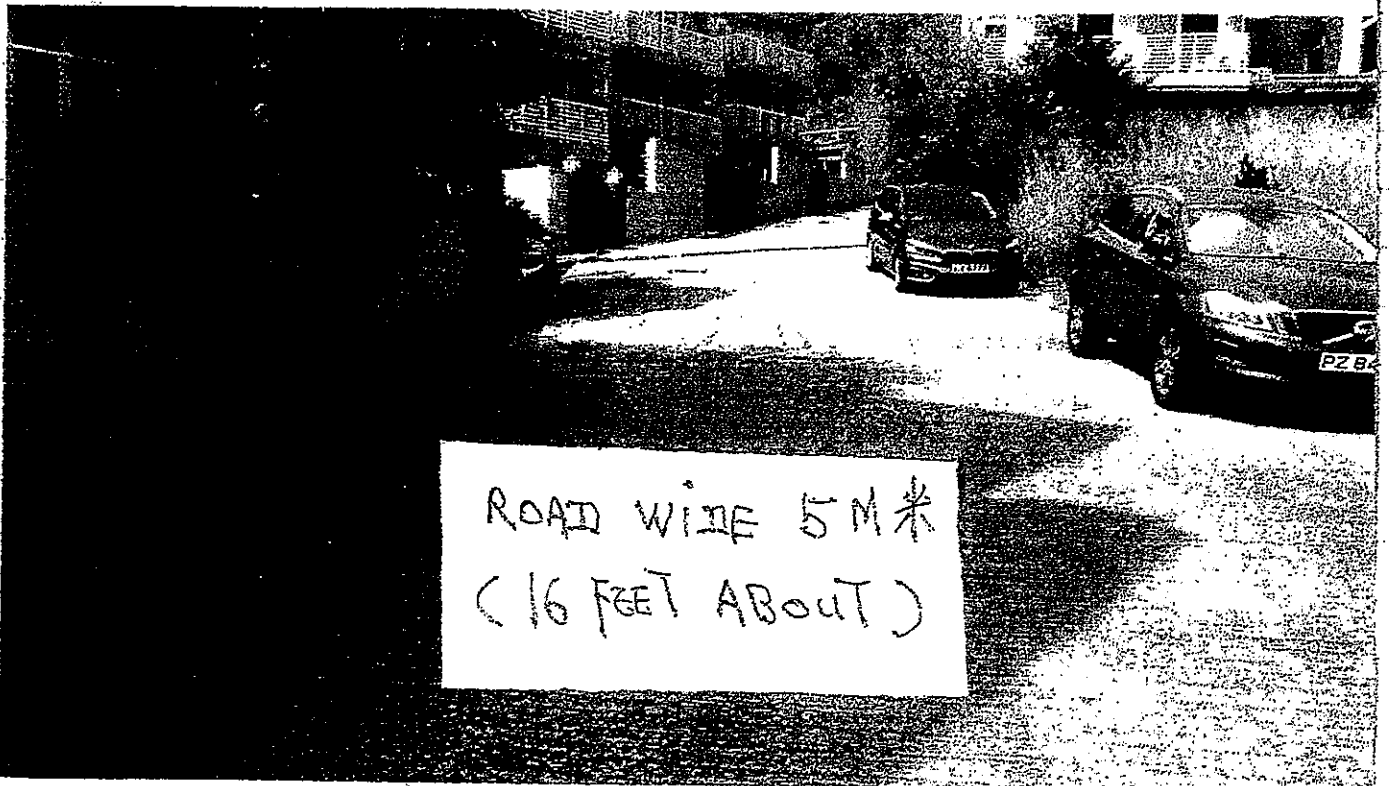 PZ B
ROAD WiDE 5 M 米
(16 FEET ABOUT)